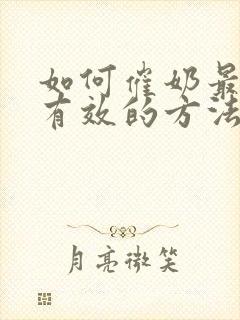 如何催奶最
有效的方法
月亮微笑